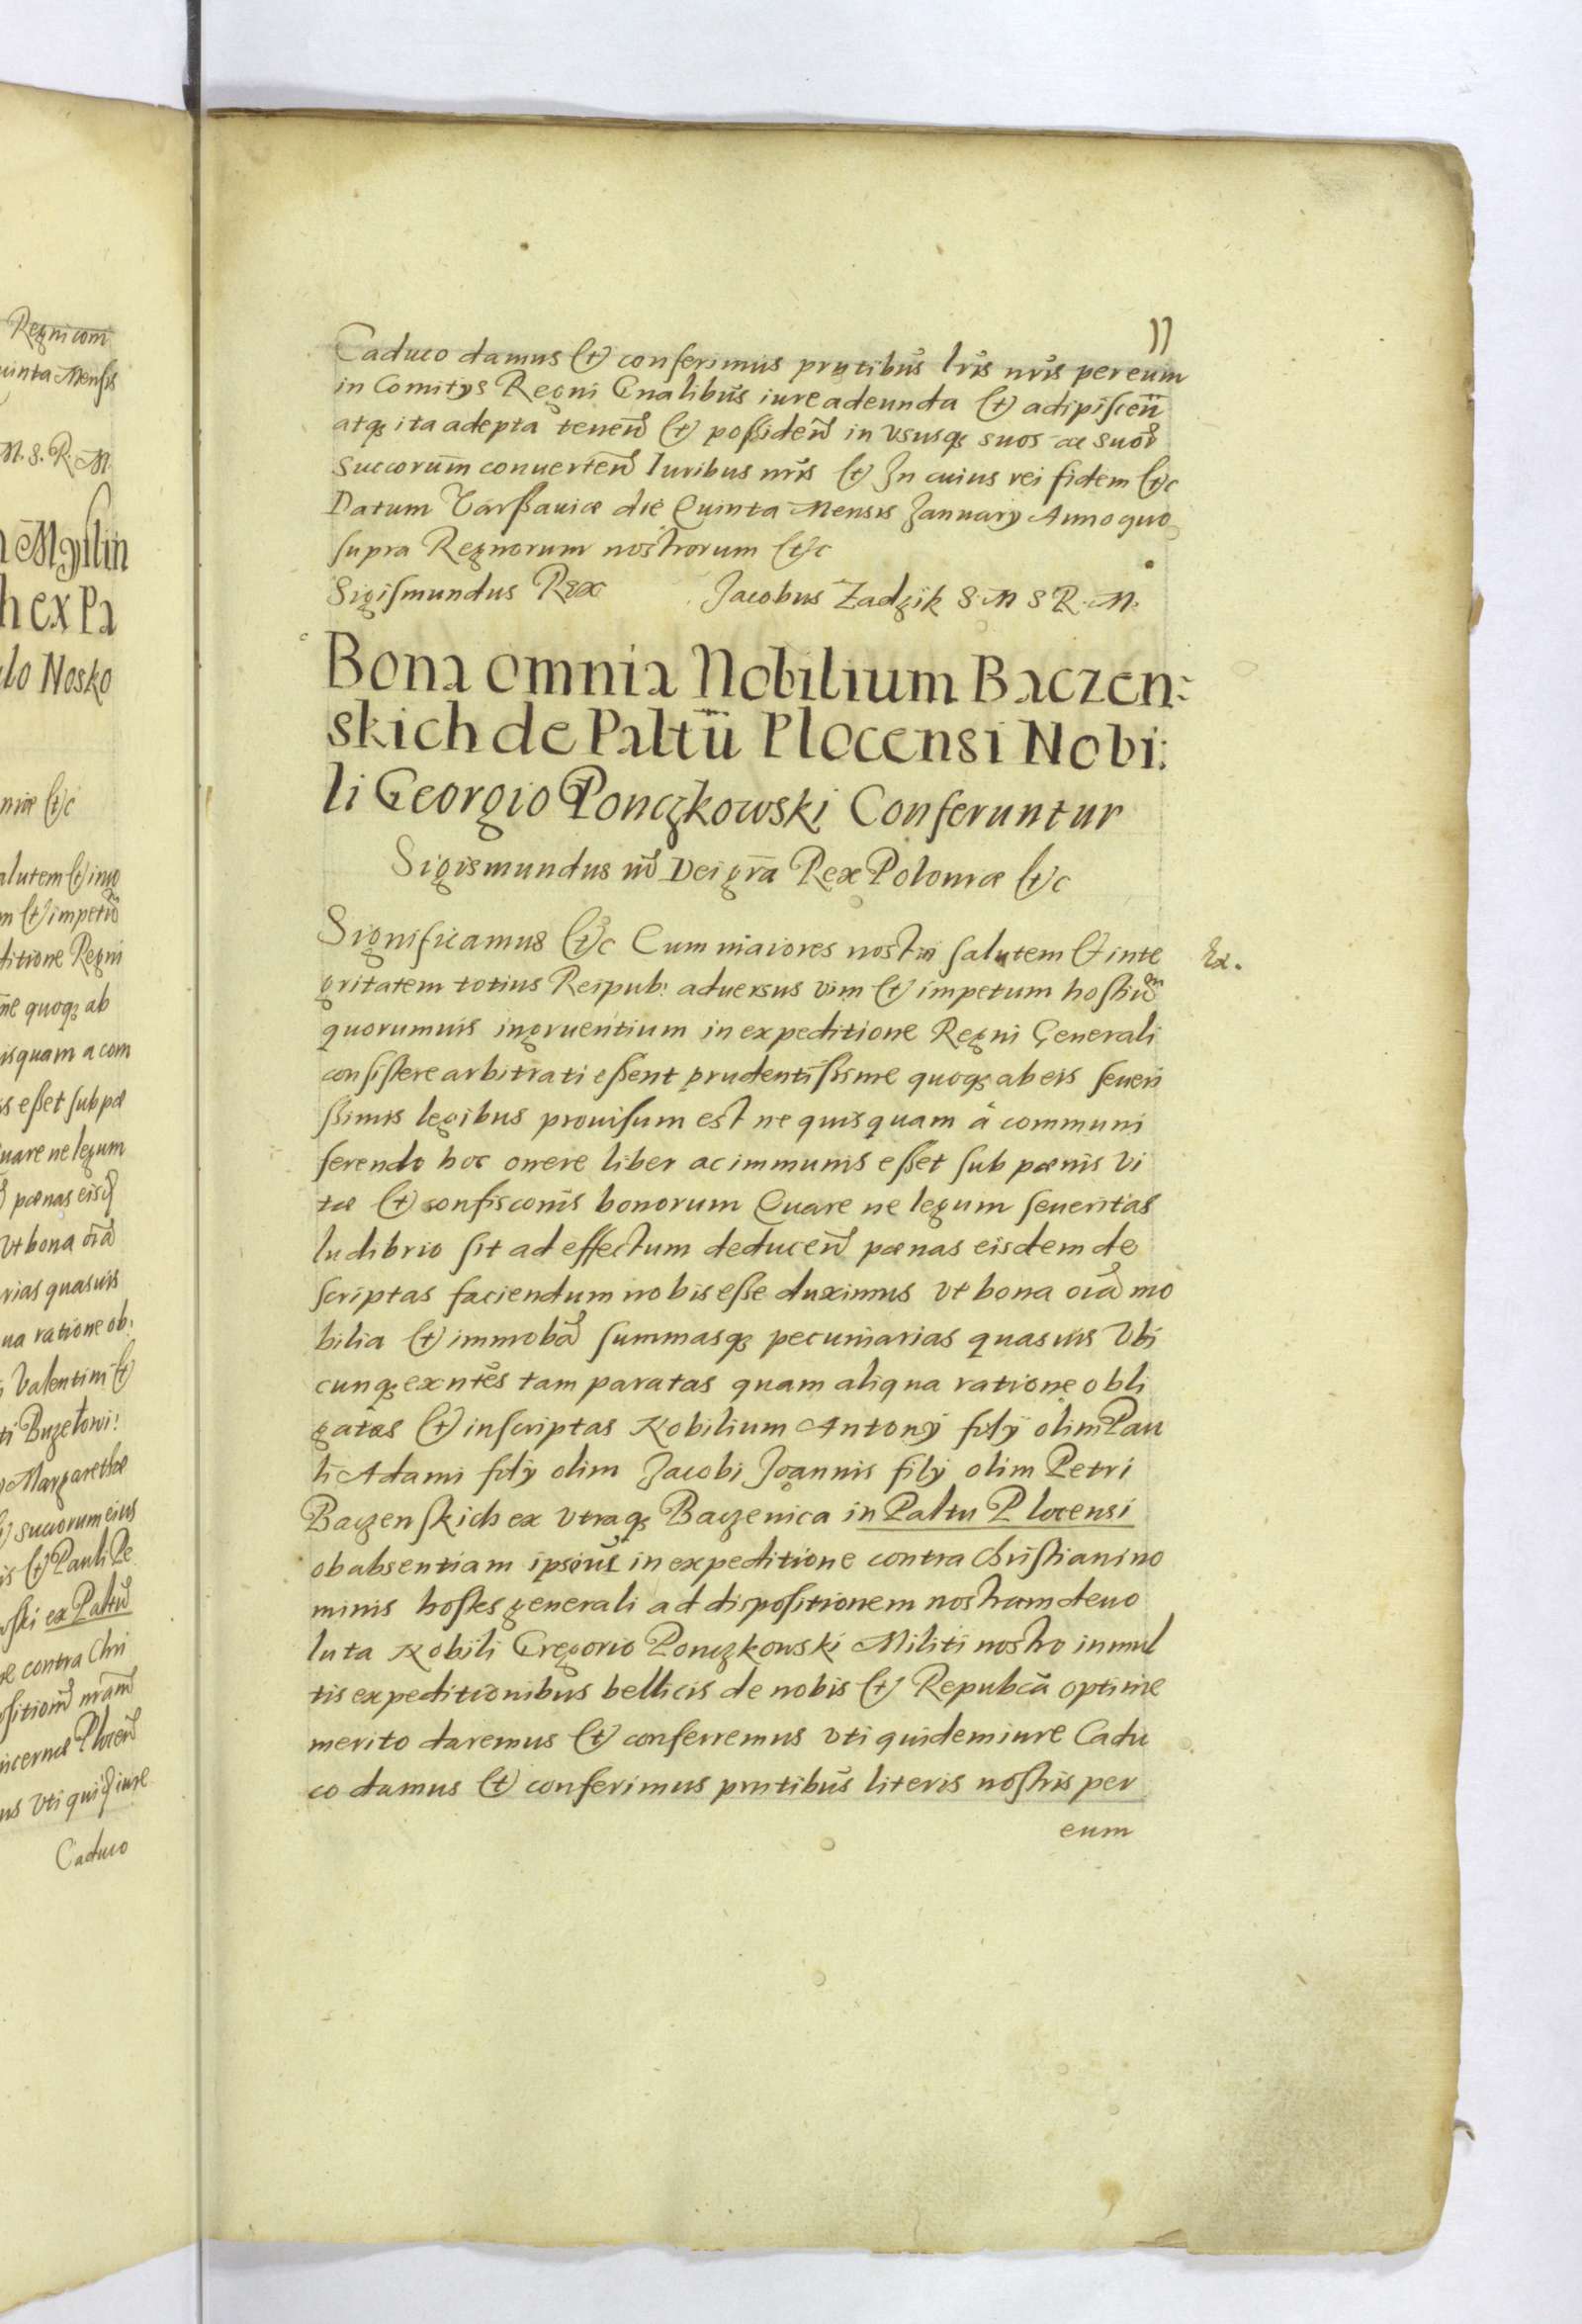 Regni com
uinta Mensis
M. S. R. M.
Myslin
h ex Pa
ulo Nosko
niæ (et)c
alutem (et) inte
m (et) impetu
ditione Regni
me quoq; ab
isquam a com
is esset sub pœ
uare ne legum
pœnas eisd
vt bona oīa
rias quasuis
ua ratione ob:
Valentini (et)
ti Buzetowi!
Margarethæ
succorum eius
is (et) Pauli Pe
oski ex Paltu
re contra Chri
ositionē nrām
incernæ Plocen
us Vti quid iure
Caduco
11
Caduco damus (et) conferimus pntibus lris nris per eum
in Comitys Regni Gnalibus iure adeunda (et) adipiscen
atq; ita adepta tenen (et) possiden in vsusq; suos ac suor
Succorum conuerten Iuribus nris (et) In cuius rei fidem (et)c
Datum Varssauiæ die Quinta Mensis January Anno quo
supra Regnorum nostrorum (et)c
Sigismundus Rex Jacobus Zadzik S. M S R. M.
Bona omnia Nobilium Baczen:
skich de Paltū Plocensi Nobi:
li Georgio Ponczkowski Conferuntur
Sigismundus iii Dei grā Rex Poloniæ (et)c
Significamus (et)c Cum maiores nostri salutem (et) inte
Ex.
gritatem totius Reipub: aduersus vim (et) impetum hostiū
quorumuis ingruentium in expeditione Regni Generali
consistere arbitrati essent prudentissime quoq; ab eis seueri
ssimis legibus prouisum est ne quisquam á communi
ferendo hoc onere liber ac immunis esset sub pœnis vi
tæ (et) confisconis bonorum Quare ne legum seueritas
ludibrio sit ad effectum deducen pœnas eisdem de
scriptas faciendum nobis esse duximus vt bona oīa mo
bilia (et) immobā summasq; pecuniarias quasuis Vbi
cunq; exntes tam paratas quam aliqua ratione obli
gatas (et) inscriptas Nobilium Antony fily olim Pau
li Adami fily olim Jacobi Joannis fily olim Petri
Baczenskich ex vtraq; Baczenica in Paltu Plocensi
ob absentiam ipsorum in expeditione contra Christiani no
minis hostes generali ad dispositionem nostram deuo
luta Nobili Gregorio Ponczkowski Militi nostro in mul
tis expeditionibus bellicis de nobis (et) Repubca optime
merito daremus (et) conferremus vti quidem iure Cadu
co damus (et) conferimus pntibus literis nostris per
eum